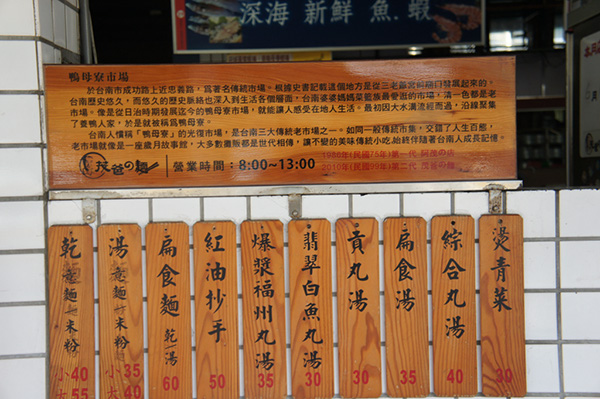 深海 新鮮 魚.蝦
鴨母寮市場
於台南市成功路上近忠義路，為著名傳統市場。根據史書記載這個地方是從三老爺宮前廟口發展起來的。
台南歷史悠久，而悠久的歷史脈絡也深入到生活各個層面，台南婆婆媽媽菜籃族最愛逛的市場，清一色都是老
市場。像是從日治時期發展迄今的鴨母寮市場，就能讓人感受在地人生活。最初因大水溝流經而過，沿線聚集
了養鴨人家，於是就被稱為鴨母寮。
台南人慣稱「鴨母寮」的光復市場，是台南三大傳統老市場之一。如同一般傳統集市，交錯了人生百態，
老市場就像是一座歲月故事館，大多數攤販都是世代相傳，讓不變的美味傳統小吃，始終伴隨著台南人成長記憶。
茂爸の麵
營業時間：8:00~13:00
1986年(民國75年)第一代 阿茂の店
2010年(民國99年)第二代 茂爸の麵
乾 意麵 米粉 小40 大55
湯 意麵 米粉 小35 大40
扁食麵 乾/湯 60
紅油抄手 50
爆漿福州丸湯 35
翡翠白魚丸湯 30
貢丸湯 30
扁食湯 35
綜合丸湯 40
燙青菜 30